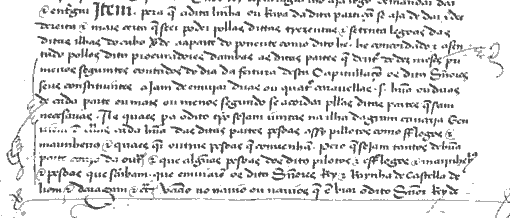 & entregu Item. pera q̃ a dita linha ou Riba da dita partiçam se aja de dar & dee
dereita & mais certa q̃ ser poder pollas ditas trezentas & setenta legoas das
ditas ilhas do cabo verde aa parte do ponente como dito he. he concordado & asen
tado pollos ditos procuradores dambas as ditas partes q̃ dentro de dez meses pri
meiros seguintes contados do dia da feitura desta Capitullaçam os ditos Señores
seus constituintes ajam de enviar duas ou quatro caravellas. s. hũa ou duas
de cada parte ou mais ou menos segundo se acordar pllas ditas partes q̃ sam
necesarias. As quaes pera o dito tpo sejam juntas na ilha da gram canarea. E en
viem em ellas cada hũa das ditas partes pesoas asy pillotos como estrologos &
marinheiros & quaes quer outras pesoas q̃ convenham. Pero q̃ sejam tantos de hũa
parte como da outra & que algũas pesoas dos ditos pilotos & estrologos & marinheyros
& pesoas que saibam que enviarem os ditos Señores Rey & Raynha de Castella de
liam & daragam & cr̃ vaão no navio ou navios que enviar o dito Señor Rey de